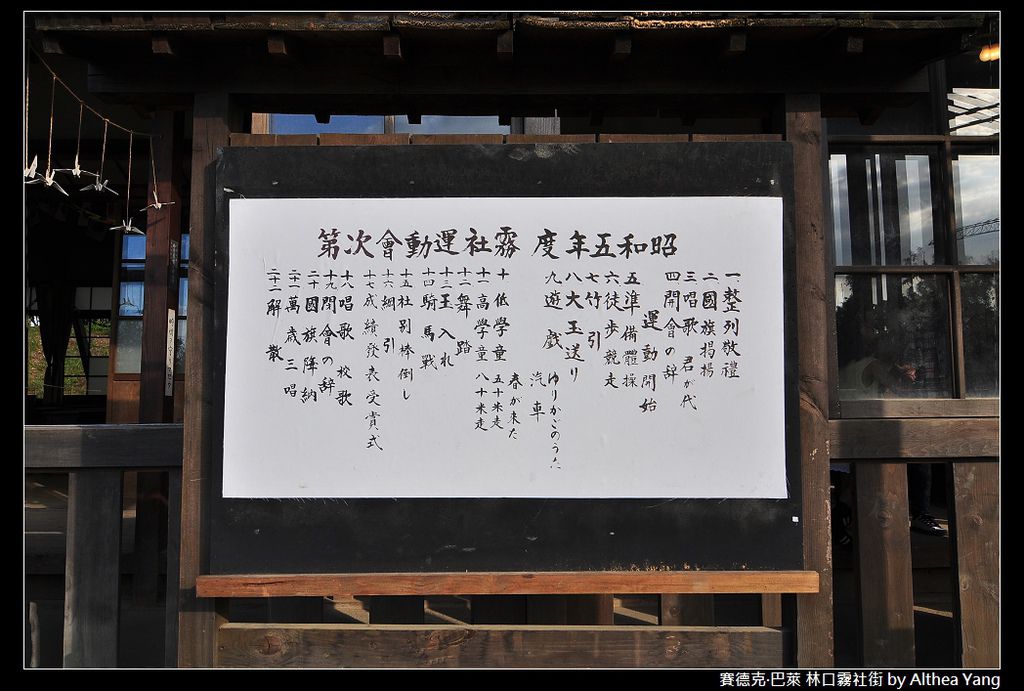 昭和五年度 霧社運動會次第
一 整列敬禮
二 國旗掲揚
三 唱歌 君が代
四 開會の辞
運動開始
五 準備體操
六 徒歩競走
七 竹引
八 大玉送り
九 遊戯 ゆりかごのうた
汽車
春が来た
十 低學童 五十米走
十一 高學童 八十米走
十二 舞踏
十三 玉入れ
十四 騎馬戰
十五 社別棒倒し
十六 綱引
十七 成績發表 受賞式
十八 唱歌 校歌
十九 閉會の辞
二十 國旗降納
二十一 萬歳三唱
二十二 解散
賽德克·巴萊 林口霧社街 by Althea Yang